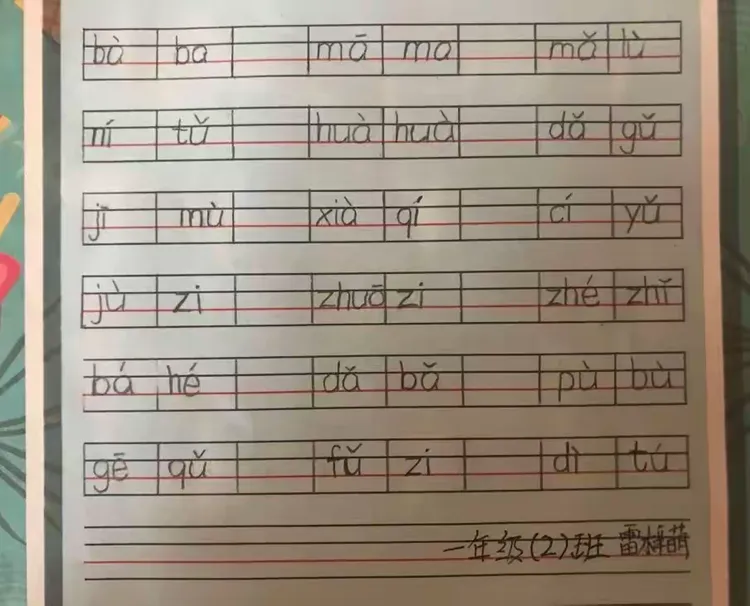 bà ba mā ma mǎ lù
ní tǔ huà huà dǎ gǔ
jī mù xià qí cí yǔ
jù zi zhuō zi zhé zhǐ
bá hé dǎ bǎ pù bù
gē qǔ fǔ zi dì tú
一年级(2)班